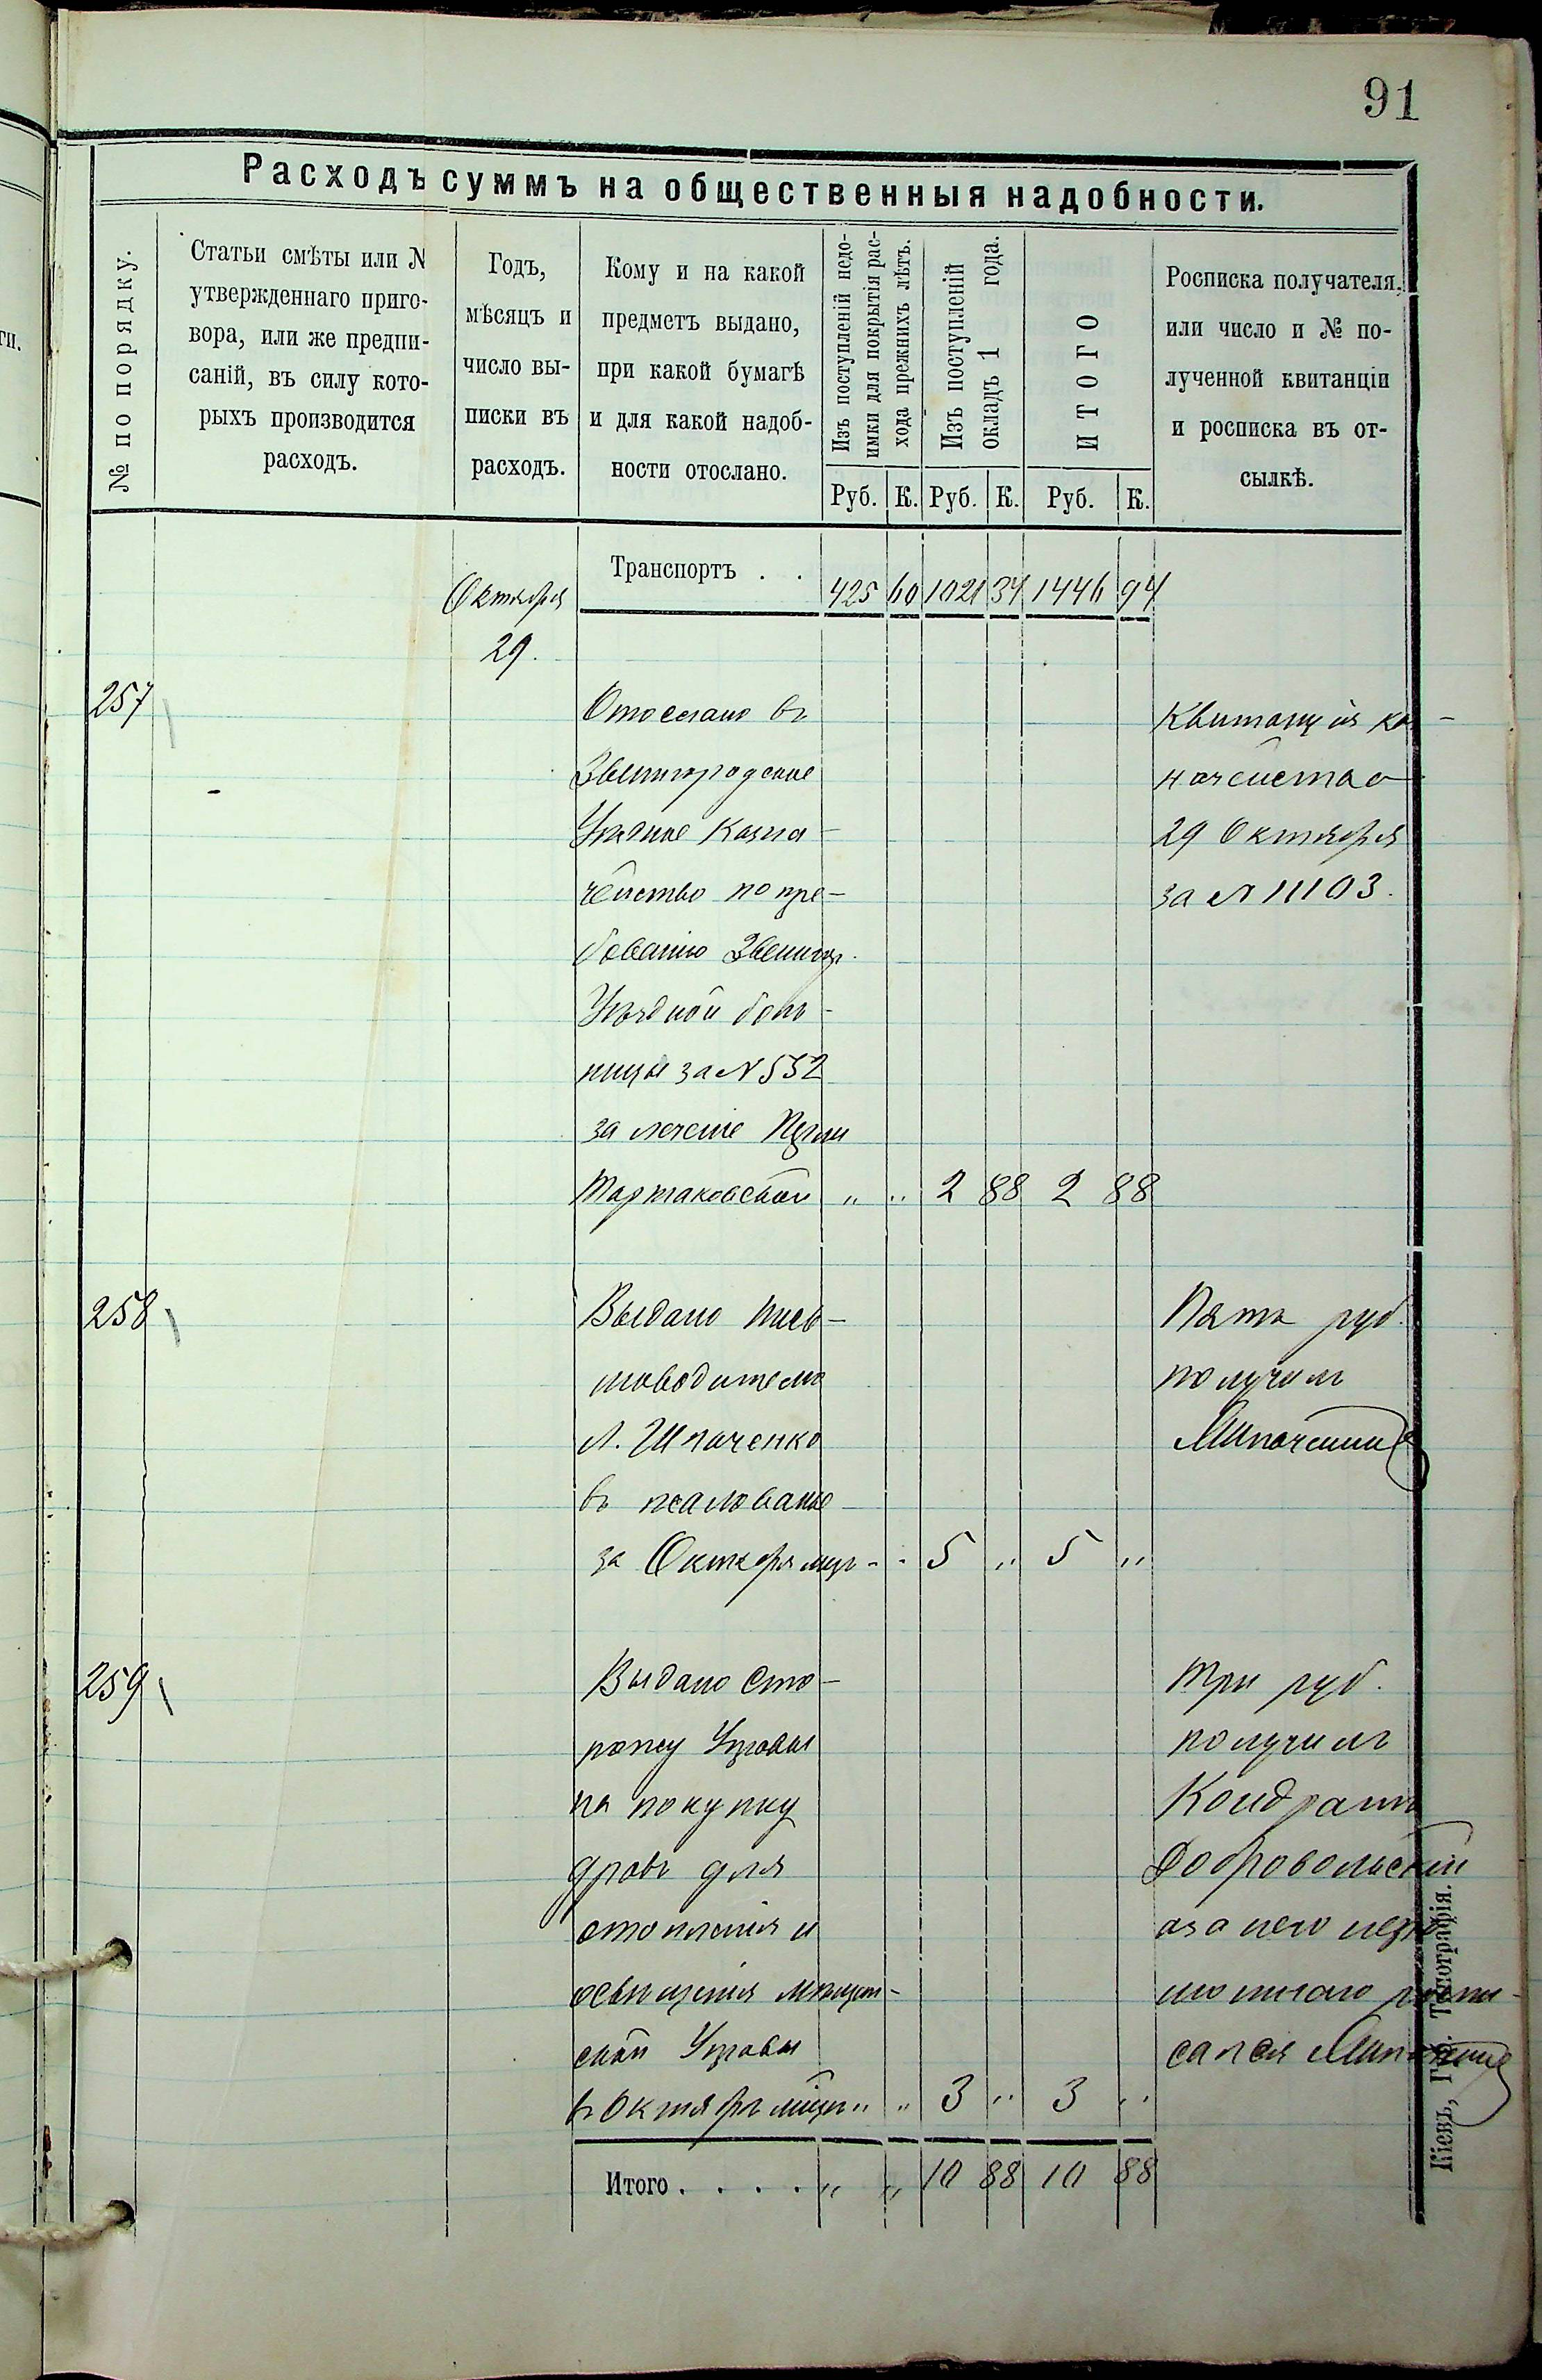 91
Расходъ суммъ на общественныя надобности.
№ по порядку.
Статьи смѣты или №
утвержденнаго приго-
вора, или же предпи-
саній, въ силу кото-
рыхъ производится
расходъ.
Годъ,
мѣсяцъ и
число вы-
писки въ
расходъ.
Кому и на какой
предметъ выдано,
при какой бумагѣ
и для какой надоб-
ности отослано.
Изъ поступленій недо-
имки для покрытія рас-
хода прежнихъ лѣтъ.
Изъ поступленій
окладъ 1 года.
ИТОГО
Росписка получателя,
или число и № по-
лученной квитанціи
и росписка въ от-
сылкѣ.
Руб. К. Руб. К. Руб. К.
Транспортъ . . 425 60 1021 34 1446 94
Октября
29.
257
Отослано въ
Звенигородское
Уѣздное Казна-
чейство по тре-
бованію Звенигор.
Уѣздной боль-
ницы за № 532
за леченіе
Тартаковской " " 2 88 2 88
Квитанція ка-
начейства
29 Октября
за № 11103.
258
Выдано пись-
моводителю
Л. Шпаченко
въ жалованье
за Октябрь мцъ - - 5 " 5 "
Пять руб.
получилъ
ЛШпаченко
259
Выдано Сто-
рожу Управы
на покупку
дровъ для
отопленія и
освѣщенія Мѣщан-
ской Управы
въ Октябрѣ мѣцѣ " " 3 " 3 "
Три руб.
получилъ
Кондратъ
Добровольскій
а за него негра-
мотнаго роспи-
сался ЛШпаченко
Итого . . . . " " 10 88 10 88
Кіевъ, Гб. Типографія.